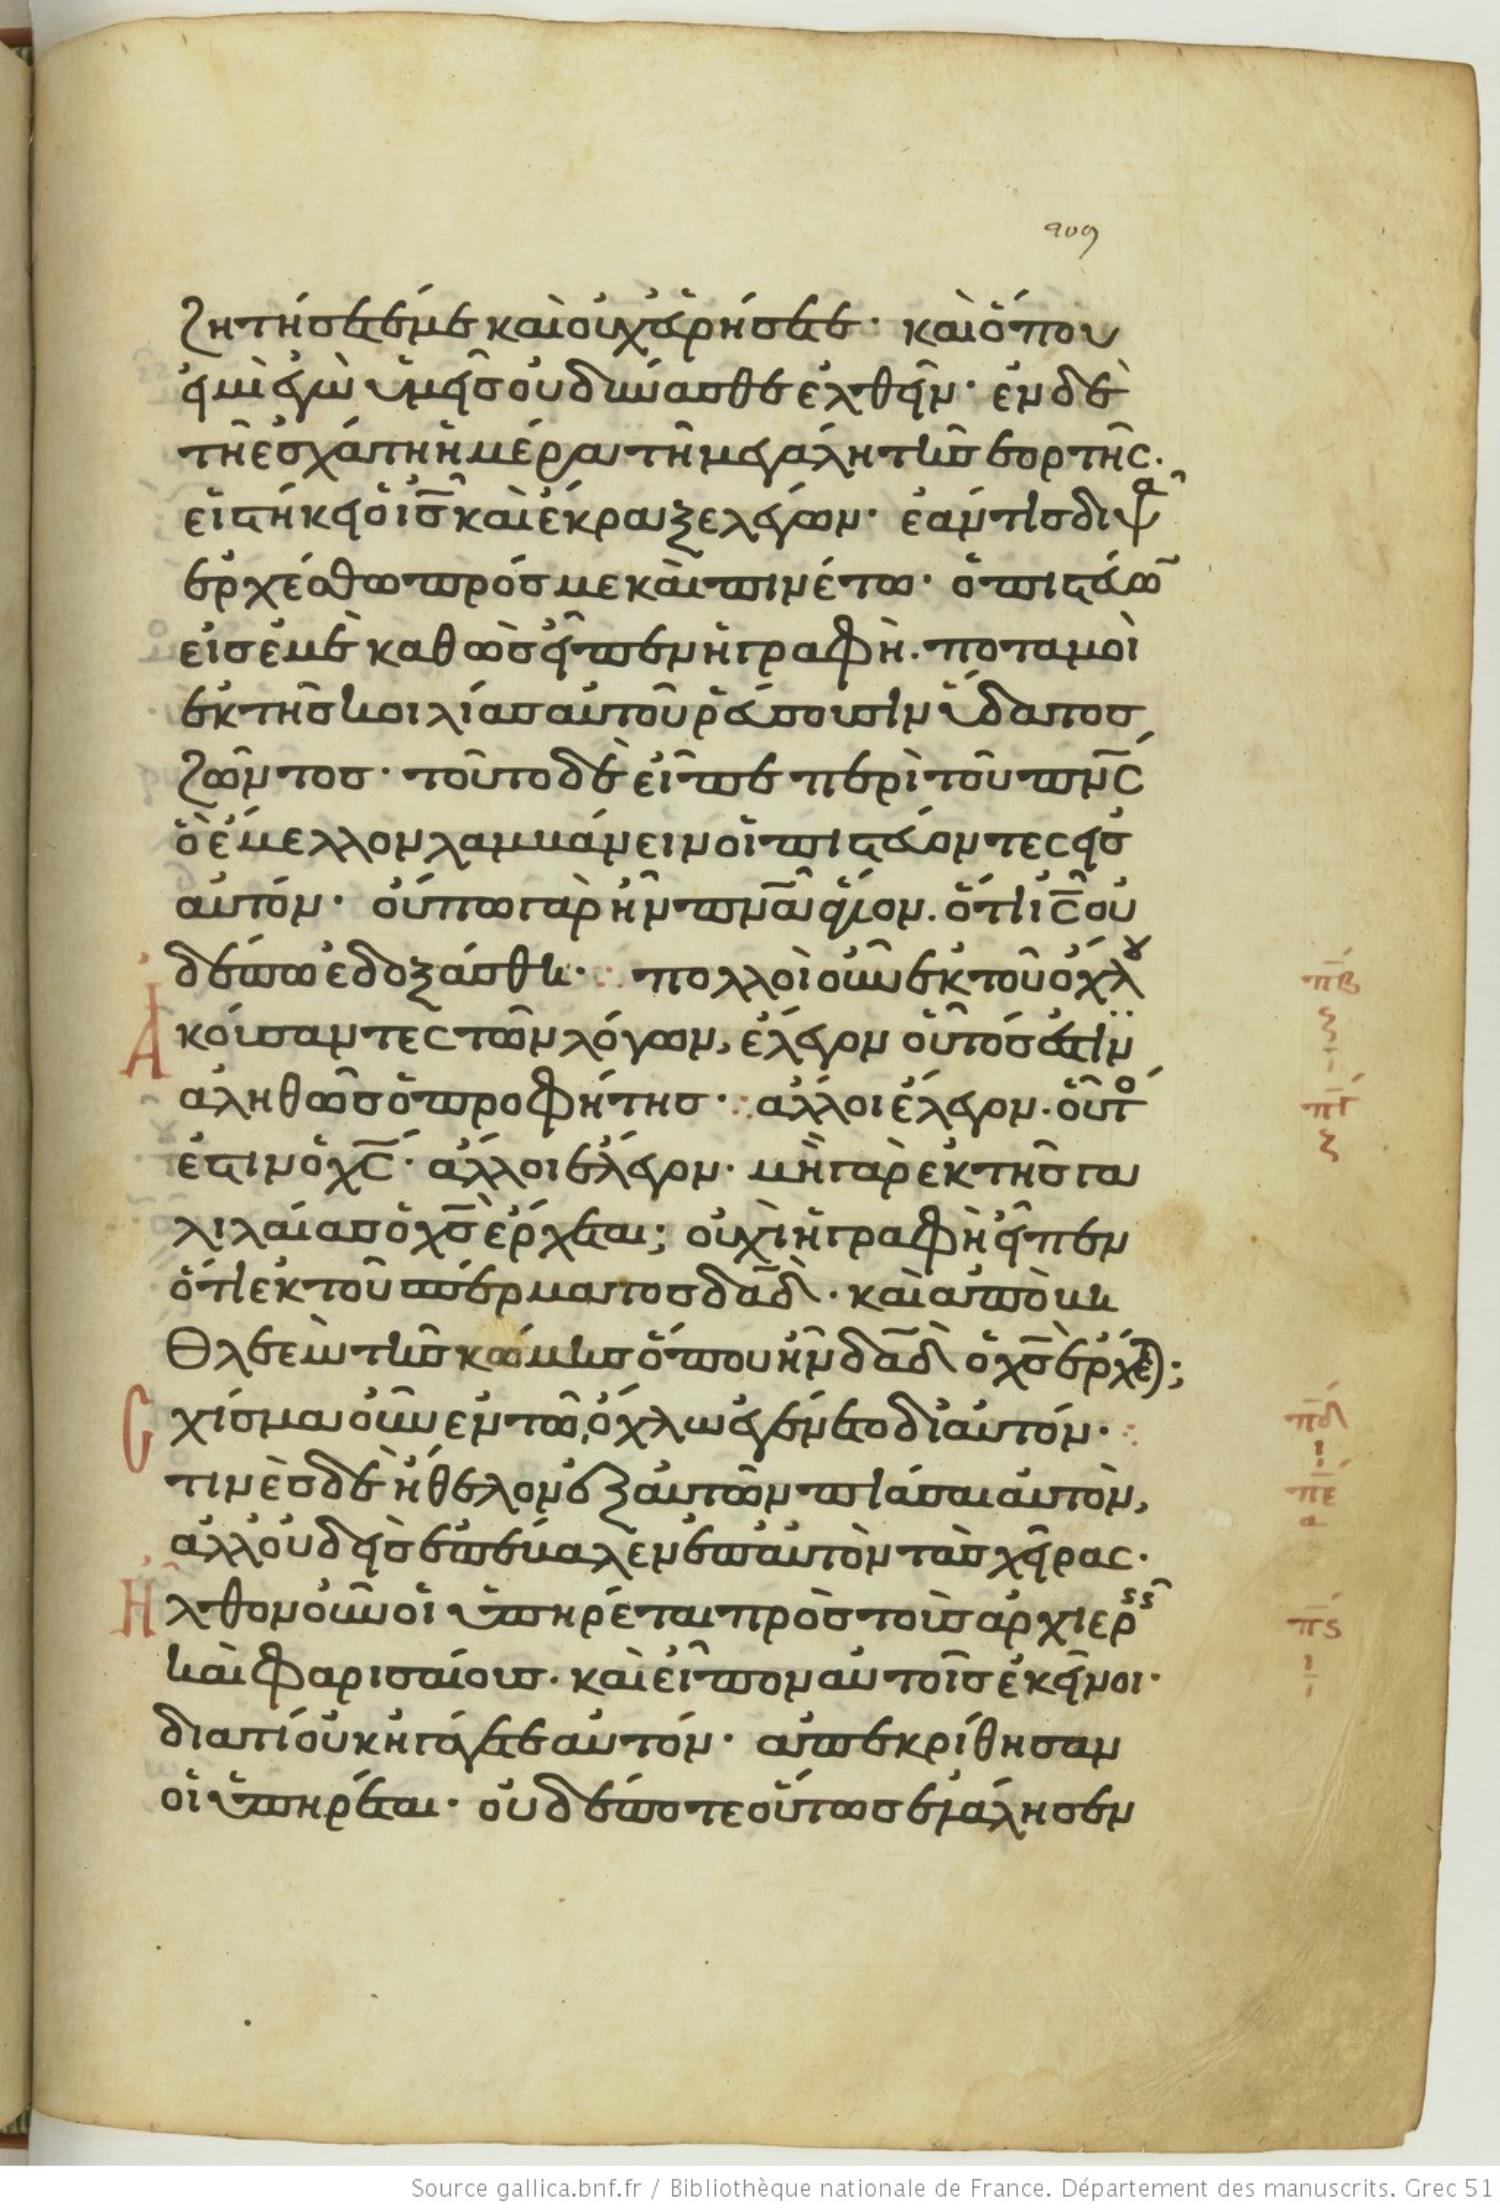 209
ζητήσετέ με καὶ οὐχ εὑρήσετε· καὶ ὅπου
εἰμὶ ἐγὼ ὑμεῖς οὐ δύνασθε ἐλθεῖν· ἐν δὲ
τῇ ἐσχάτῃ ἡμέρα τῇ μεγάλη τῆς ἑορτῆς.
εἱστήκει ὁ ις καὶ έκραξε λέγων· ἐάν τις διψᾶ
ἐρχέσθω πρός με καὶ πινέτω· ὁ πιστεύων
εἰς ἐμὲ καθὼς εἶπεν ἡ γραφὴ. ποταμοὶ
ἐκ τῆς κοιλίας αὐτοῦ ῥεύσουσιν ὕδατος
ζῶντος· τοῦτο δὲ εἶπε περὶ τοῦ πνς
ὃ ἔμελλον λαμβάνειν οἱ πιστεύοντες εἰς
αὐτόν· οὔπω γὰρ ἦν πνα ἅγιον. ὅτι ις οὐ
δέπω ἐδοξάσθη· πολλοὶ οὖν ἐκ τοῦ ὄχλου
Ἀκούσαντες τῶν λόγων, ἔλεγον οὗτός ἐστϊν
ἀληθῶς ὁ προφήτης· ἄλλοι ἔλεγον. οὗτο
ἐστιν ὁ χς· ἄλλοι ἔλεγον· μὴ γὰρ ἐκ τῆς γα
λιλαίας ὁ χς ἔρχεται; οὐχὶ ἡ γραφὴ εἶπεν
ὅτι ἐκ τοῦ σπέρματος δαδ. καὶ ἀπὸ βη
θλεὲμ τῆς κώμης ὅπου ἦν δαδ ὁ χς ἔρχεται;
Σχίσμα οὖν ἐν τῶ ὄχλω ἐγένετο δι αὐτόν·
τινὲς δὲ ἤθελον ἐξ αὐτῶν πιάσαι αὐτὸν,
ἀλλ οὐδεὶς ἐπέβαλεν ἐπ αὐτὸν τὰς χεῖρας·
Ἦλθον οὖν οἱ ὑπηρέται πρὸς τοὺς ἀρχιερεῖς
καὶ φαρισαίους. καὶ εἶπον αὐτοῖς ἐκεῖνοι·
διατί οὐκ ἠγάγετε αὐτόν· ἀπεκρίθησαν
οἱ ὑπηρέται· οὐδέποτε οὕτως ἐλάλησεν
πβ
ζ
πγ
ζ
πδ
ι
πε
α
πϛ
ι
Source gallica.bnf.fr / Bibliothèque nationale de France. Département des manuscrits. Grec 51